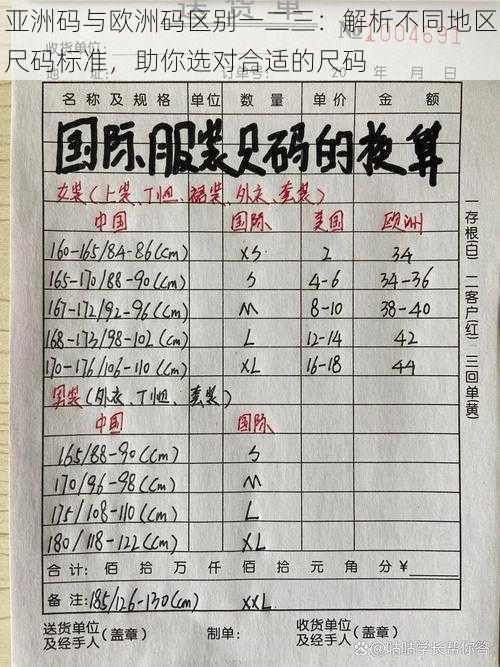 亚洲码与欧洲码区别一二三：解析不同地区
尺码标准，助你选对合适的尺码
送货单
1004691
20 年 月 日
名称及规格 单位 数量 单价 金额
国际服装尺码的换算
女装(上装、T恤、裙装、外衣、套装)
中国 国际 美国 欧洲
160-165/84-86(cm) XS 2 34
165-170/88-90(cm) S 4-6 34-36
167-172/92-96(cm) M 8-10 38-40
168-173/98-102(cm) L 12-14 42
170-176/106-110(cm) XL 16-18 44
男装(外衣、T恤、套装)
中国 国际
165/88-90(cm) S
170/96-98(cm) M
175/108-110(cm) L
180/118-122(cm) XL
合计： 佰 拾 万 仟 佰 拾 元 角 分 ¥
备注：185/126-130(cm) XXL
送货单位及经手人(盖章) 收货单位及经手人(盖章)
一存根(白) 二客户(红) 三回单(黄)